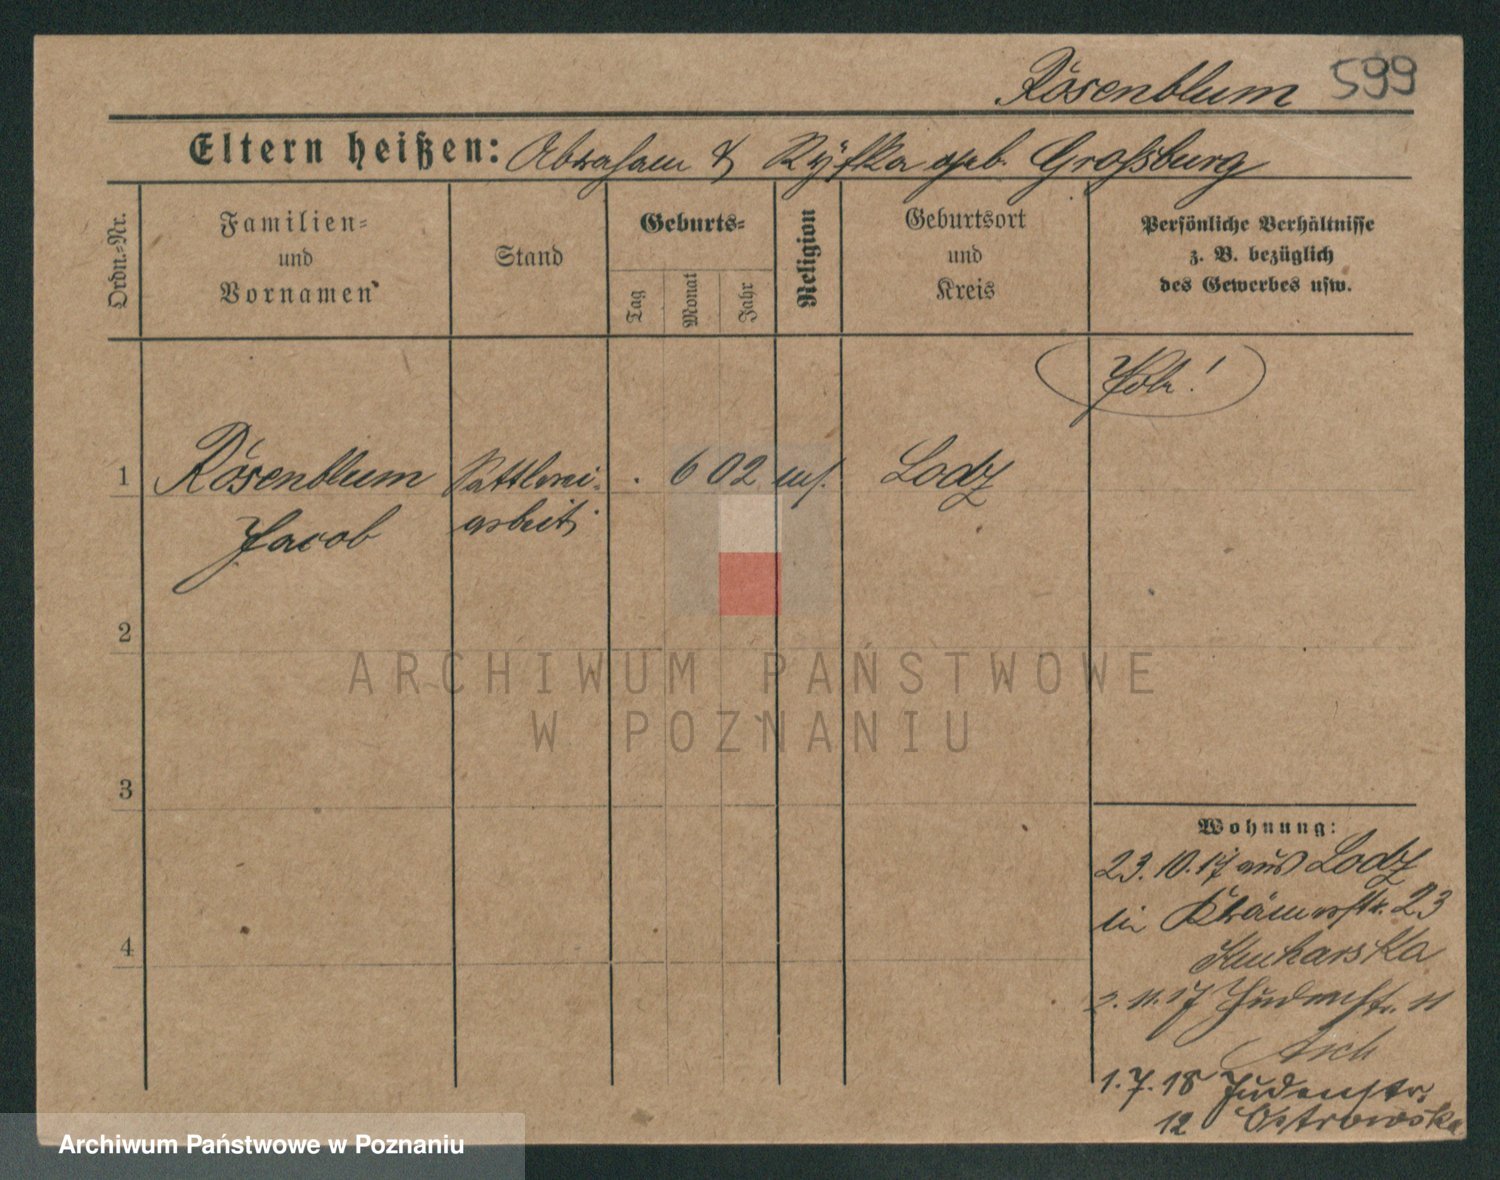 Rosenblum 599
Eltern heißen: Abraham & Ryfka geb. Grossburg
Ordn.=Nr.
Familien=
und
Vornamen
Stand
Geburts=
Tag
Monat
Jahr
Religion
Geburtsort
und
Kreis
Persönliche Verhältnisse
z. B. bezüglich
des Gewerbes usw.
1 Rosenblum Sattlerei- . 6 02 Lodz
Jacob arbeit
2
3
4
Wohnung:
23.10.17 aus Lodz
in Krämerstr. 23
Kucharska
2.11.17 Judenstr. 11
Asch
1.7.18 Judenstr.
12 Ostrowska
ARCHIWUM PAŃSTWOWE
W POZNANIU
Archiwum Państwowe w Poznaniu